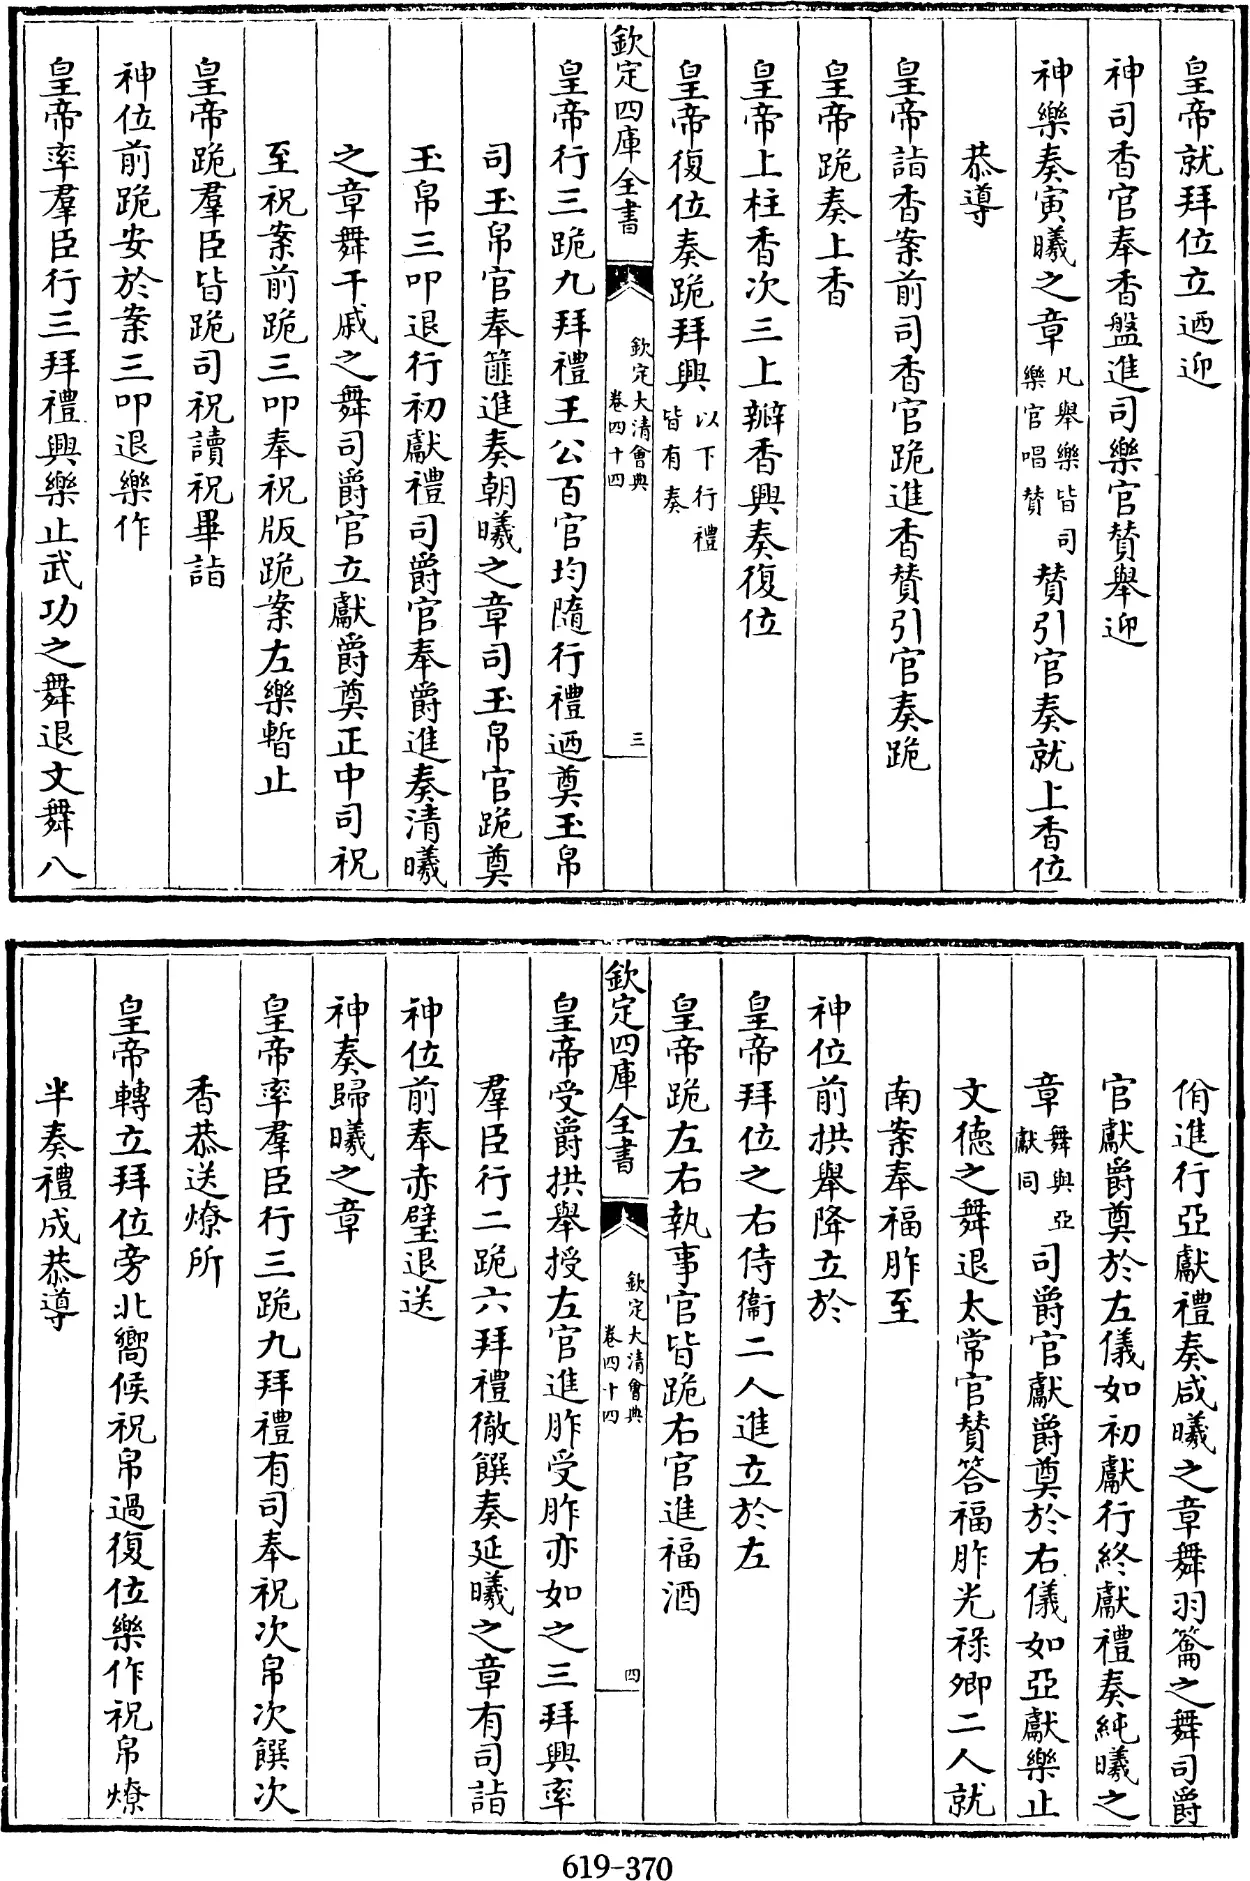 皇帝就拜位立迺迎
神司香官奉香盤進司樂官贊舉迎
神樂奏寅曦之章凡舉樂皆司樂官唱贊贊引官奏就上香位
恭導
皇帝詣香案前司香官跪進香贊引官奏跪
皇帝跪奏上香
皇帝上柱香次三上瓣香興奏復位
皇帝復位奏跪拜興以下行禮皆有奏
欽定四庫全書
欽定大清會典
卷四十四
三
皇帝行三跪九拜禮王公百官均隨行禮迺奠玉帛
司玉帛官奉篚進奏朝曦之章司玉帛官跪奠
玉帛三叩退行初獻禮司爵官奉爵進奏清曦
之章舞干戚之舞司爵官立獻爵奠正中司祝
至祝案前跪三叩奉祝版跪案左樂暫止
皇帝跪羣臣皆跪司祝讀祝畢詣
神位前跪安於案三叩退樂作
皇帝率羣臣行三拜禮興樂止武功之舞退文舞八
佾進行亞獻禮奏咸曦之章舞羽籥之舞司爵
官獻爵奠於左儀如初獻行終獻禮奏純曦之
章舞與亞獻同司爵官獻爵奠於右儀如亞獻樂止
文德之舞退太常官贊答福胙光祿卿二人就
南案奉福胙至
神位前拱舉降立於
皇帝拜位之右侍衞二人進立於左
皇帝跪左右執事官皆跪右官進福酒
欽定四庫全書
欽定大清會典
卷四十四
四
皇帝受爵拱舉授左官進胙受胙亦如之三拜興率
羣臣行二跪六拜禮徹饌奏延曦之章有司詣
神位前奉赤璧退送
神奏歸曦之章
皇帝率羣臣行三跪九拜禮有司奉祝次帛次饌次
香恭送燎所
皇帝轉立拜位旁北嚮候祝帛過復位樂作祝帛燎
半奏禮成恭導
619-370